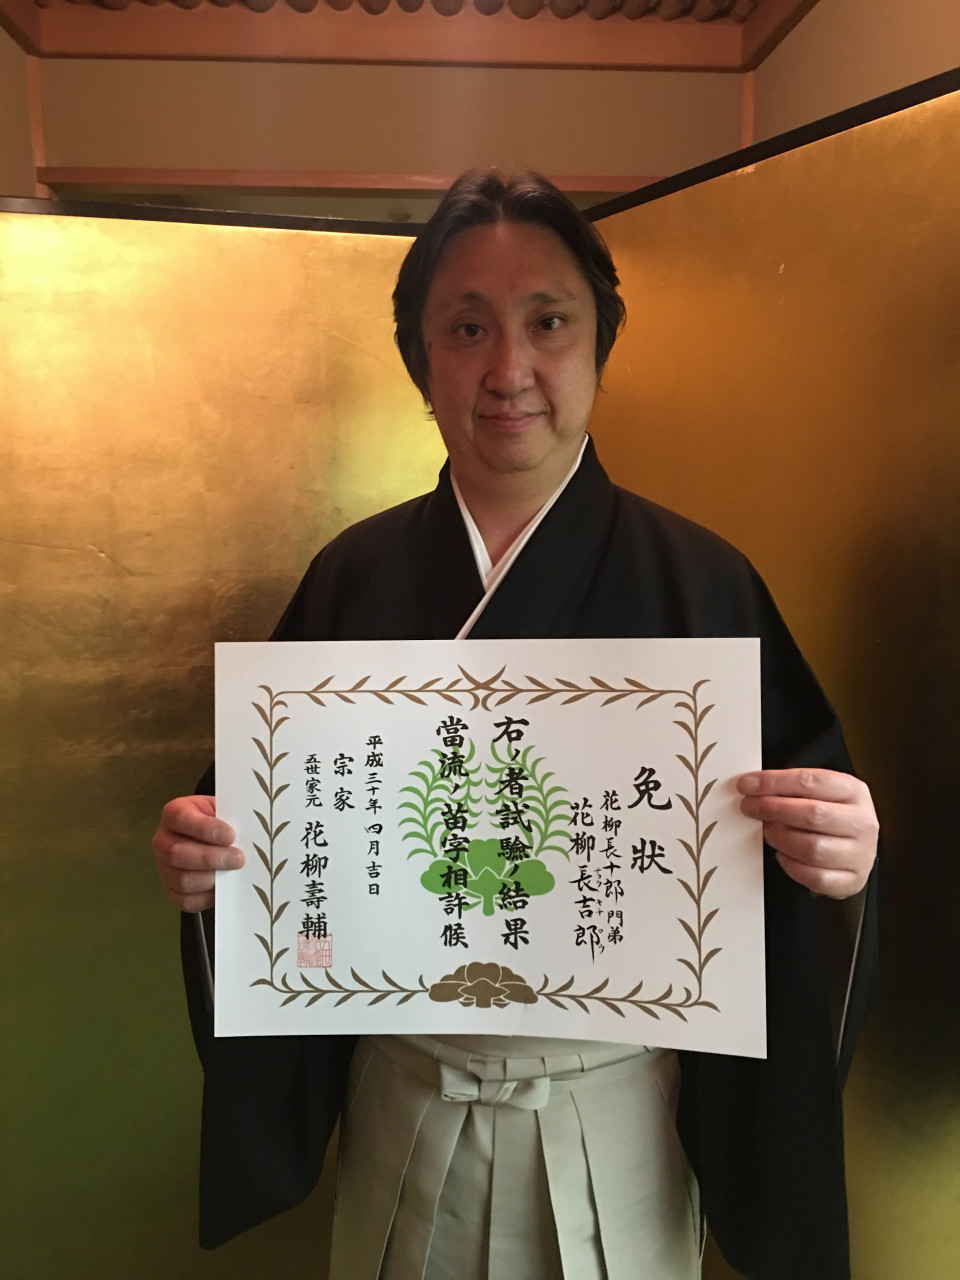 免状
花柳長十郎門弟
花柳長吉郎
チョウ キチ ロウ
右ノ者試驗ノ結果
當流ノ苗字相許候
平成三十年四月吉日
宗家
五世家元 花柳壽輔